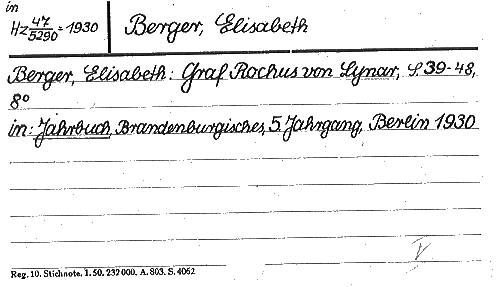 in
Hz 47/5290 = 1930
Berger, Elisabeth
Berger, Elisabeth: Graf Rochus von Lynar, S. 39-48,
8°
in: Jahrbuch, Brandenburgisches, 5. Jahrgang, Berlin 1930
V
Reg. 10. Stichnote. 1. 50. 232000. A. 803. S. 4062